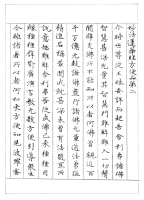 妙法蓮華経方便品第二
尒時世尊従三昧安詳而起告舎利弗諸佛
智慧甚深無量其智慧門難解難入一切聲
聞辟支佛所不能知所以者何佛曽親近百
千万億無数諸佛盡行諸佛無量道法勇猛
精進名稱普聞成就甚深未曽有法隨宜所
説意趣難解舎利弗吾従成佛已來種種因
縁種種譬喩廣演言教無数方便引導衆生
令離諸著所以者何如來方便知見波羅蜜